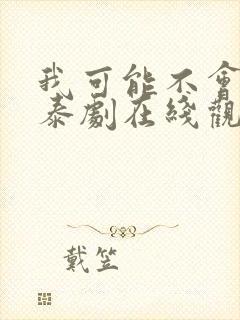 我可能不會
泰劇在綫觀
戴笠